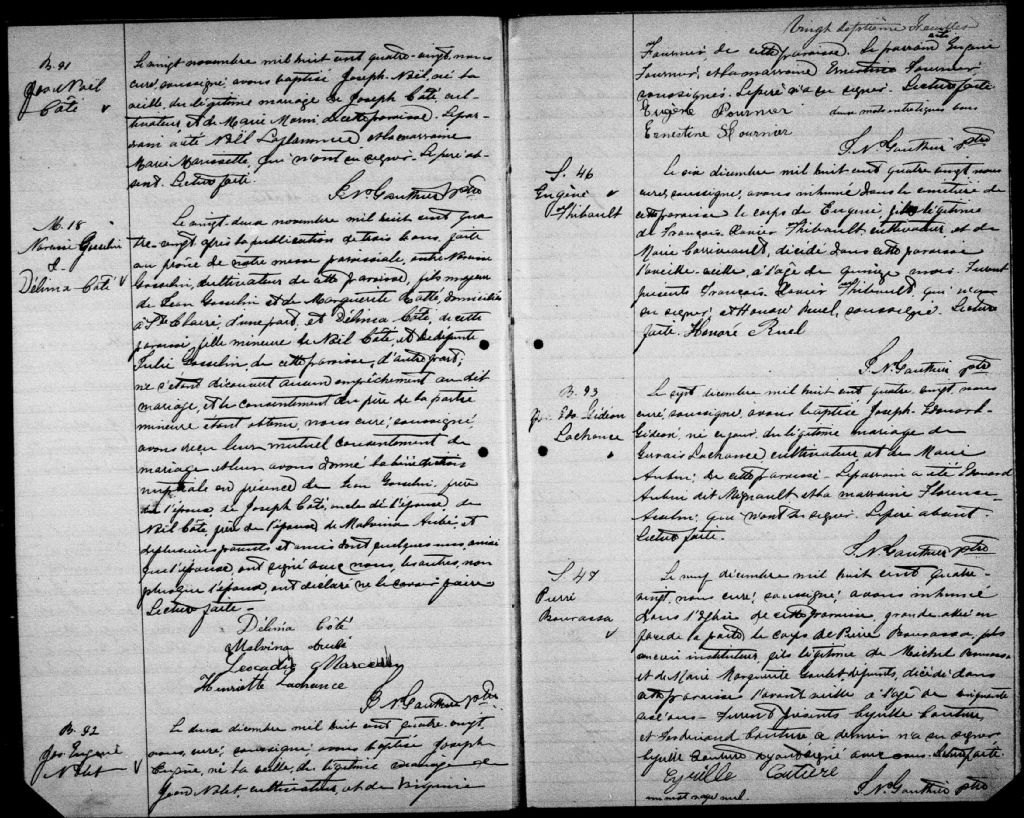 B. 91
Jos. Noël
Côté
Le vingt novembre mil huit cent quatre-vingt, nous
curé, soussigné, avons baptisé Joseph-Noël, né la
veille, du légitime mariage de Joseph Côté, cul-
tivateur et de Marie Morin, de cette paroisse. Le par-
rain a été Noël Laflamme, et la marraine
Marie Marissette, qui n'ont su signer. Le père ab-
sent. Lecture faite.
J. N. Gauthier ptre
M. 18
Narcisse Gosselin
&
Délima Côté
Le vingt-deux novembre mil huit cent qua-
tre-vingt, après la publication de trois bans, faite
au prône de notre messe paroissiale, entre Narcisse
Gosselin, cultivateur de cette paroisse, fils majeur
de Jean Gosselin et de Marguerite domiciliés
à Ste Claire, d'une part, et Délima Côté, de cette
paroisse, fille mineure de Noël Côté, et de défunte
Julie Gosselin, de cette paroisse, d'autre part;
ne s'étant découvert aucun empêchement au dit
mariage, et le consentement du père de la partie
mineure étant obtenu, nous curé, soussigné,
avons reçu leur mutuel consentement de
mariage et leur avons donné la bénédiction
nuptiale en présence de Jean Gosselin, père
de l'époux, de Joseph Côté, oncle de l'épouse, de
Noël Côté, père de l'épouse, de Malvina Aubé, et
de plusieurs parents et amis dont quelques-uns, ainsi
que l'épouse, ont signé avec nous, les autres, non
plus que l'époux, ont déclaré ne le savoir faire
Lecture faite -
Délima Côté
Malvina Aubé
Léocadie
Henriette Lachance
J. N. Gauthier ptre
B. 92
Jos. Eugène
Nolet
Le deux décembre mil huit cent quatre-vingt
nous, curé, soussigné avons baptisé Joseph
Eugène, né la veille, du légitime mariage de
Jean Nolet, cultivateur, et de Virginie
Vingt septième Feuillet
Fournier, de cette paroisse. Le parrain a été Eugène
Fournier, et la marraine Ernestine Fournier,
soussignés. Le père n'a su signer. Lecture faite.
Eugène Fournier deux mots bons
Ernestine Fournier
J. N. Gauthier ptre
S. 46
Eugène
Thibault
Le six décembre mil huit cent quatre-vingt nous
curé, soussigné, avons inhumé dans le cimetière de
cette paroisse le corps de Eugène, fils légitime
de François-Xavier Thibault cultivateur et de
Marie Corriveault, décédé dans cette paroisse
l'avant-veille, à l'âge de quinze mois. Furent
présents François-Xavier Thibault, qui n'a
su signer, et Honoré Ruel, soussigné. Lecture
faite. Honoré Ruel
J. N. Gauthier ptre
B. 93
Jos. Edo. Gédéon
Lachance
Le sept décembre mil huit cent quatre-vingt, nous
curé, soussigné, avons baptisé Joseph-Edouard-
Gédéon, né ce jour, du légitime mariage de
Gervais Lachance cultivateur et de Marie
Aubin, de cette paroisse. Le parrain a été Edouard
Aubin dit Mignault et la marraine Florence
Aubin, qui n'ont su signer. Le père absent.
Lecture faite.
J. N. Gauthier ptre
S. 47
Pierre
Bourassa
Le neuf décembre mil huit cent quatre-
vingt, nous curé, soussigné, avons inhumé
dans l'Eglise de cette paroisse, grande allée en
face de la porte, le corps de Pierre Bourassa,
ancien instituteur, fils légitime de Michel Bourassa
et de Marie Marguerite Goulet, défunts, décédé dans
cette paroisse l'avant-veille à l'âge de soixante
ans. Furent présents Cyrille Couture,
et Ferdinand Couture ce dernier n'a su signer
Cyrille Couture ayant signé avec nous. Lecture faite.
Cyrille Couture
un mot rayé nul.
J. N. Gauthier ptre